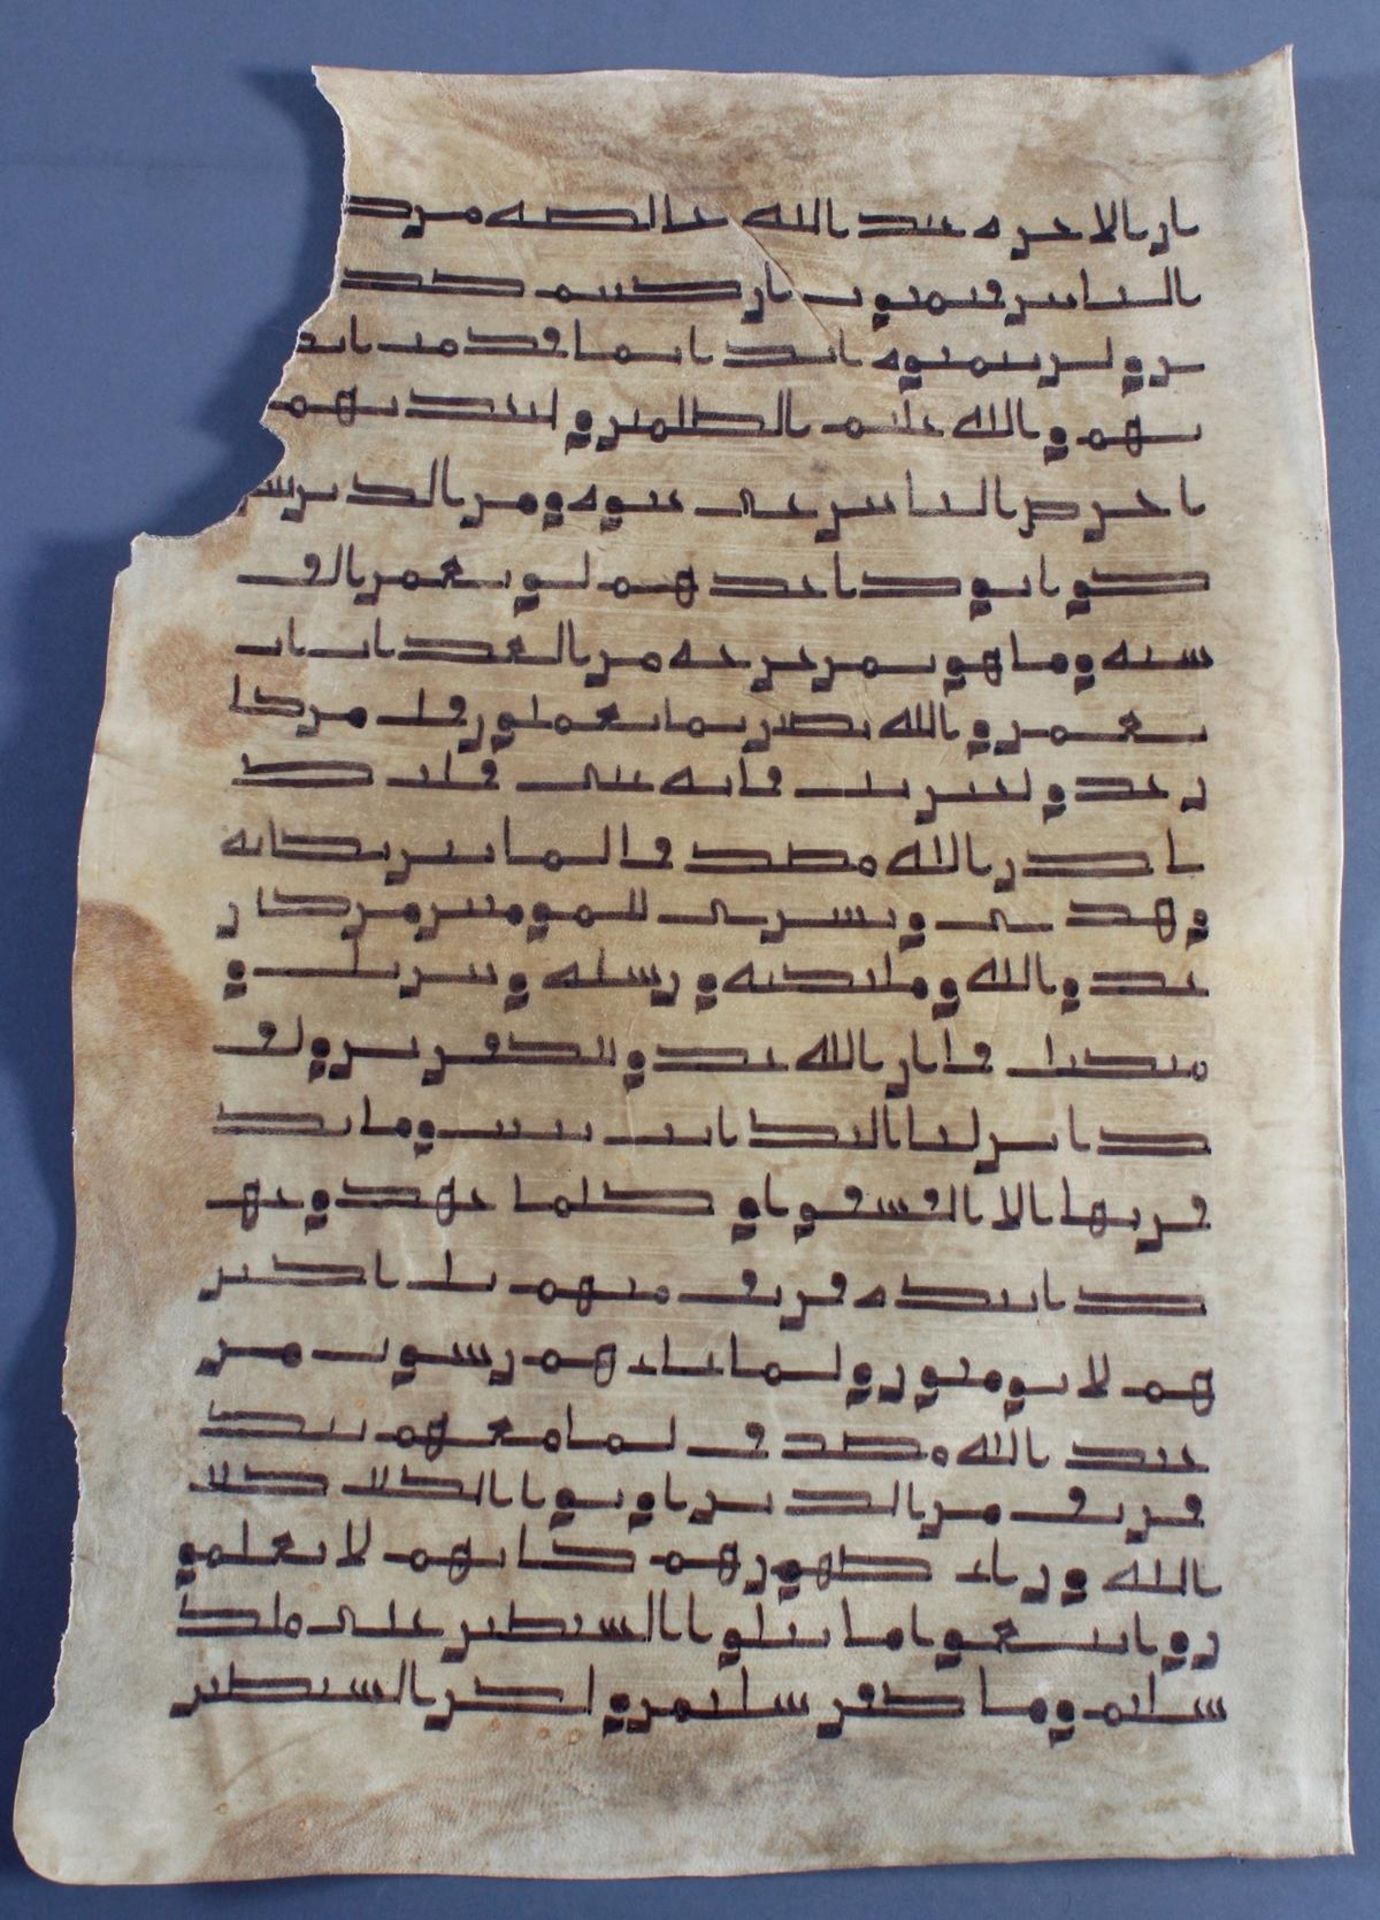 ار الاخره عند الله خالصه من د
الناس ان كنتم صد
ن ولن يتمنوه ابدا بما قدمت ايد
يهم والله عليم بالظلمين ولتجدنهم
احرص الناس على حيوه ومن الذين
كوا يود احدهم لو يعمر الف
سنه وما هو بمزحزحه من العذاب ان
يعمر والله بصير بما يعملون قل من كا
ن عدوا لجبريل فانه على قلبك
باذن الله مصدقا لما بين يديه
وهدى وبشرى للمومنين من كان
عدوا لله وملئكته ورسله وجبريل و
ميكيل فان الله عدو للكفرين ولق
د انزلنا اليك ايت بينت وما يك
فر بها الا الفسقون او كلما عهدوا عه
دا نبذه فريق منهم بل اكثر
هم لا يومنون ولما جاءهم رسول من
عند الله مصدق لما معهم نبذ
فريق من الذين اوتوا الكتب كتب
الله وراء ظهورهم كانهم لا يعلمو
ن واتبعوا ما تتلوا الشيطين على ملك
سليمن وما كفر سليمن ولكن الشيطين